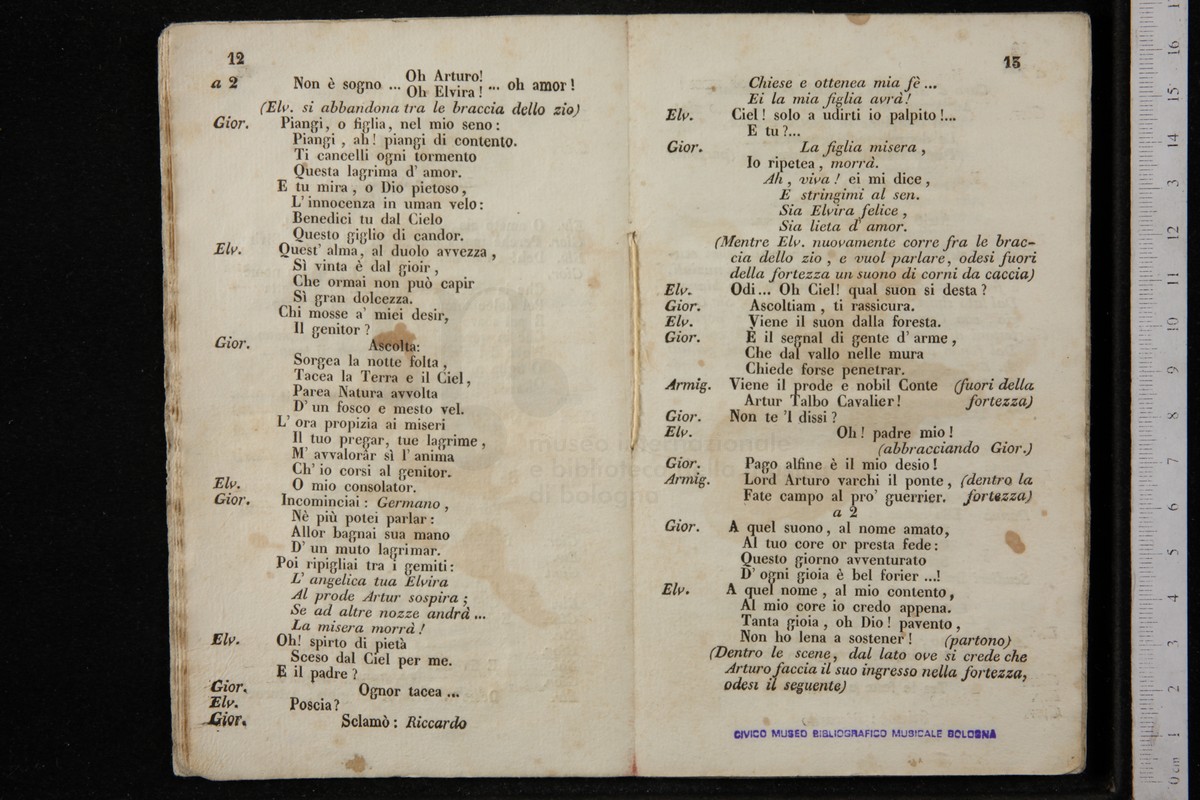 12
a 2 Non è sogno ... Oh Arturo! ... oh amor!
Oh Elvira!
(Elv. si abbandona tra le braccia dello zio)
Gior. Piangi, o figlia, nel mio seno:
Piangi, ah! piangi di contento.
Ti cancelli ogni tormento
Questa lagrima d' amor.
E tu mira, o Dio pietoso,
L' innocenza in uman velo:
Benedici tu dal Cielo
Questo giglio di candor.
Elv. Quest' alma, al duolo avvezza,
Sì vinta è dal gioir,
Che ormai non può capir
Sì gran dolcezza.
Chi mosse a' miei desir,
Il genitor?
Gior. Ascolta:
Sorgea la notte folta,
Tacea la Terra e il Ciel,
Parea Natura avvolta
D' un fosco e mesto vel.
L' ora propizia ai miseri
Il tuo pregar, tue lagrime,
M' avvalorâr sì l' anima
Ch' io corsi al genitor.
Elv. O mio consolator.
Gior. Incominciai: Germano,
Nè più potei parlar:
Allor bagnai sua mano
D' un muto lagrimar.
Poi ripigliai tra i gemiti:
L' angelica tua Elvira
Al prode Artur sospira;
Se ad altre nozze andrà ...
La misera morrà!
Elv. Oh! spirto di pietà
Sceso dal Ciel per me.
E il padre?
Gior. Ognor tacea ...
Elv. Poscia?
Gior. Sclamò: Riccardo
13
Chiese e ottenea mia fè ...
Ei la mia figlia avrà!
Elv. Ciel! solo a udirti io palpito!...
E tu?...
Gior. La figlia misera,
Io ripetea, morrà.
Ah, viva! ei mi dice,
E stringimi al sen.
Sia Elvira felice,
Sia lieta d' amor.
(Mentre Elv. nuovamente corre fra le brac-
cia dello zio, e vuol parlare, odesi fuori
della fortezza un suono di corni da caccia)
Elv. Odi... Oh Ciel! qual suon si desta?
Gior. Ascoltiam, ti rassicura.
Elv. Viene il suon dalla foresta.
Gior. È il segnal di gente d' arme,
Che dal vallo nelle mura
Chiede forse penetrar.
Armig. Viene il prode e nobil Conte (fuori della
Artur Talbo Cavalier! fortezza)
Gior. Non te 'l dissi?
Elv. Oh! padre mio!
(abbracciando Gior.)
Gior. Pago alfine è il mio desio!
Armig. Lord Arturo varchi il ponte, (dentro la
Fate campo al pro' guerrier. fortezza)
a 2
Gior. A quel suono, al nome amato,
Al tuo core or presta fede:
Questo giorno avventurato
D' ogni gioia è bel forier ...!
Elv. A quel nome, al mio contento,
Al mio core io credo appena.
Tanta gioia, oh Dio! pavento,
Non ho lena a sostener! (partono)
(Dentro le scene, dal lato ove si crede che
Arturo faccia il suo ingresso nella fortezza,
odesi il seguente)
CIVICO MUSEO BIBLIOGRAFICO MUSICALE BOLOGNA
museo internazionale
e biblioteca della
di bologna
0 cm 1 2 3 4 5 6 7 8 9 10 11 12 13 14 15 16